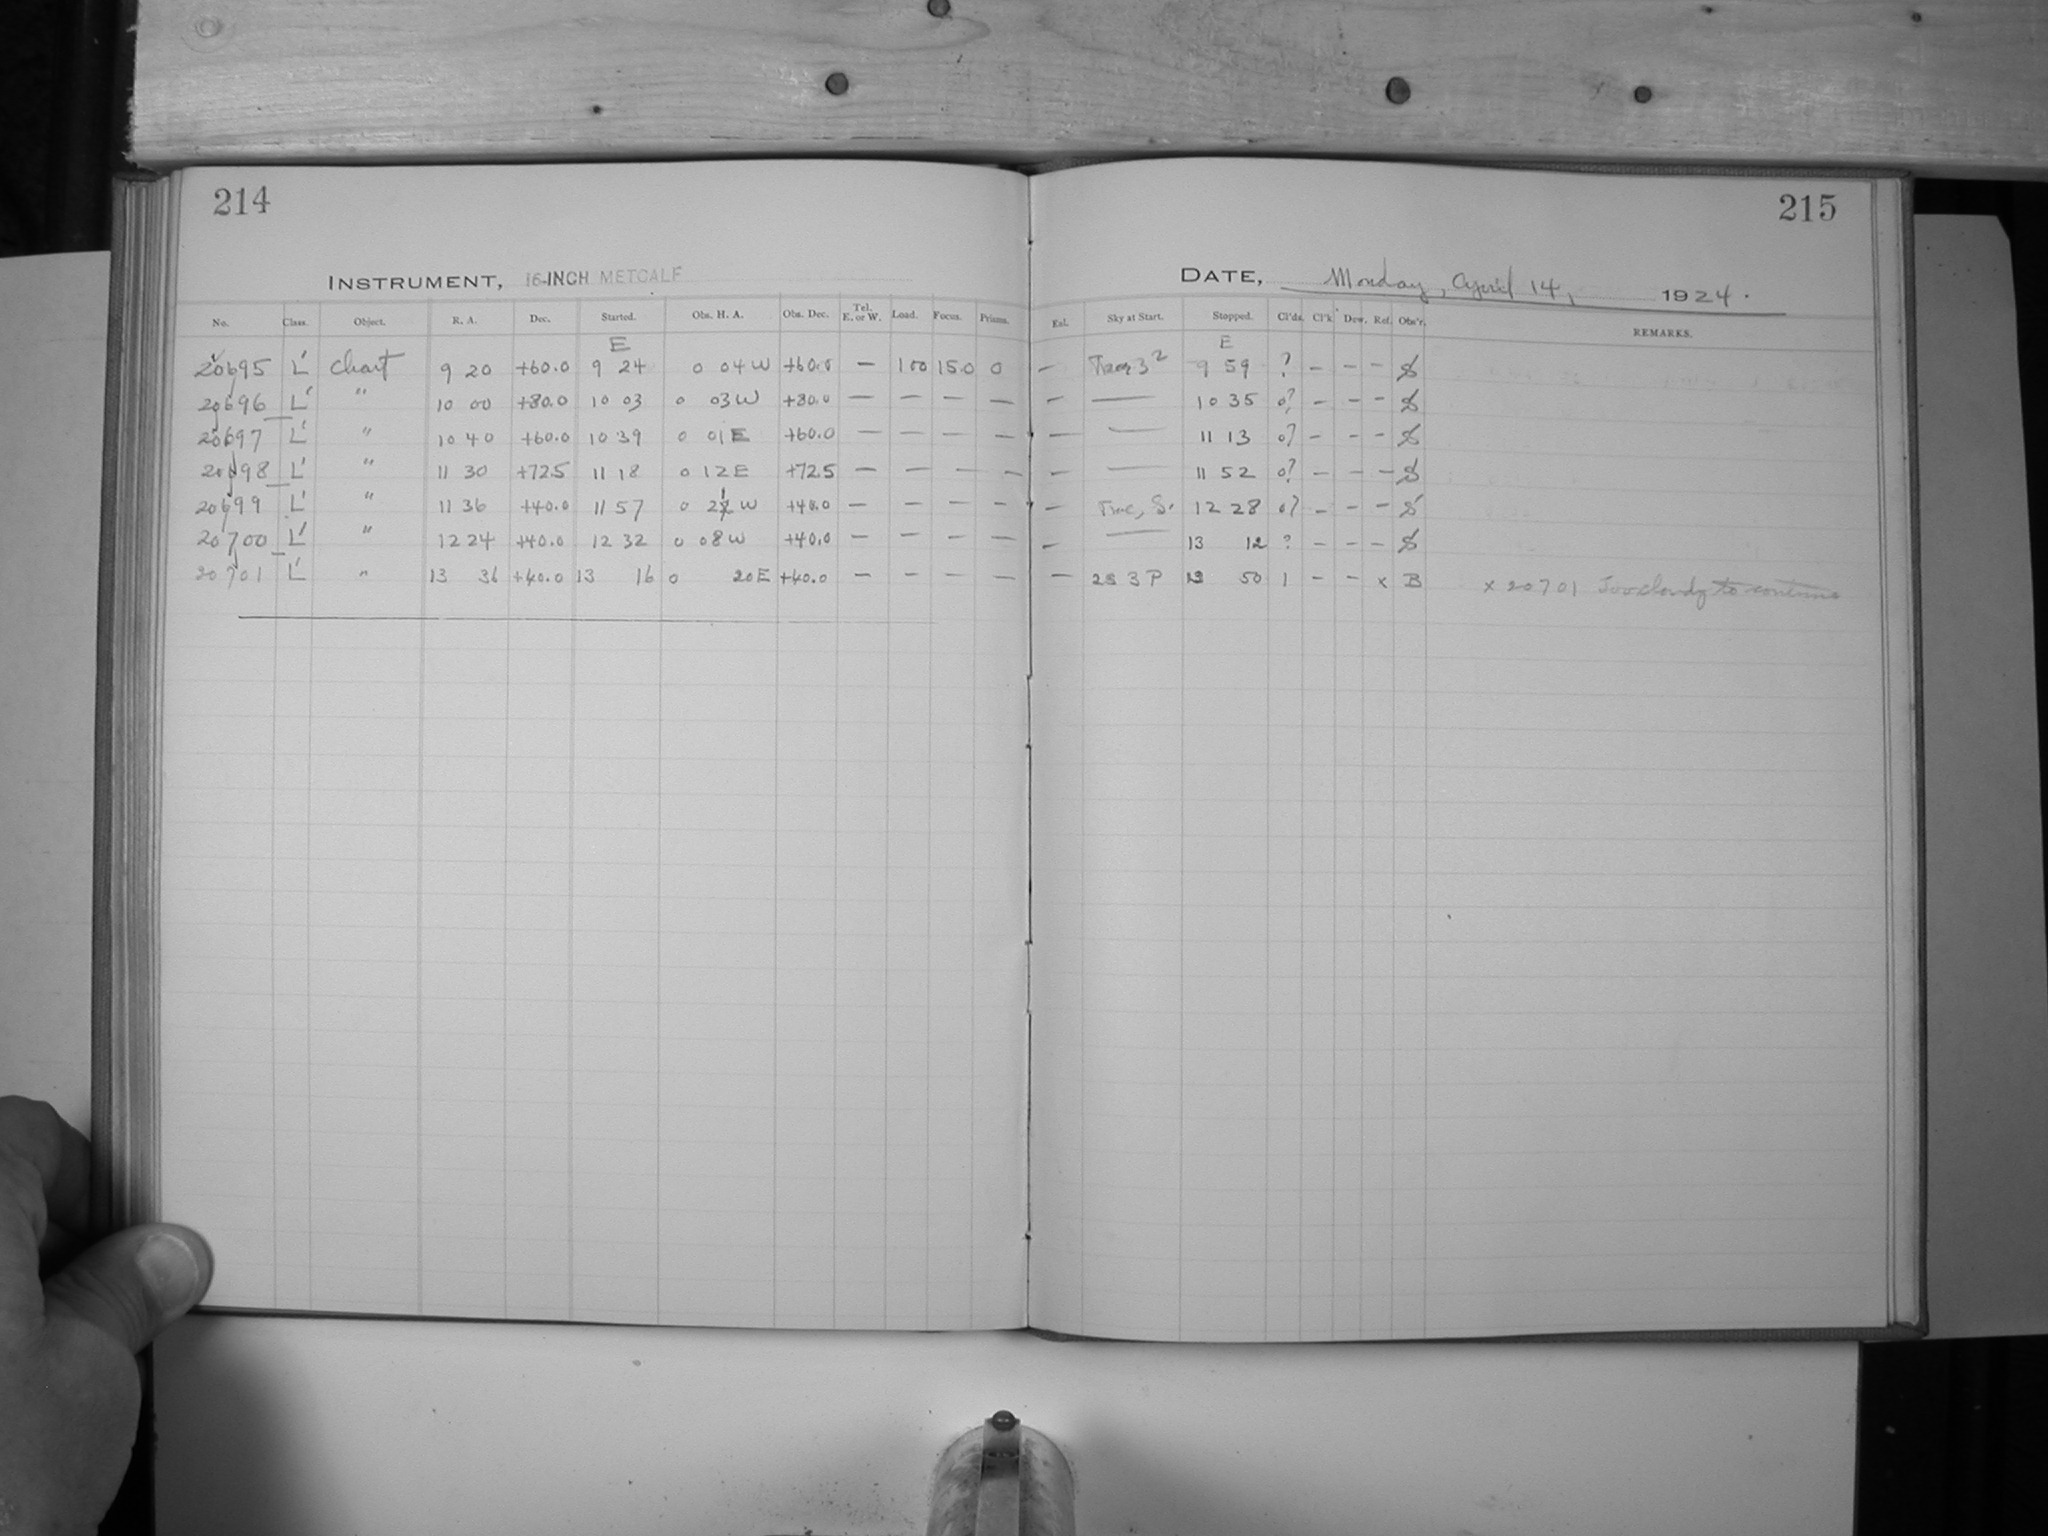 214
INSTRUMENT, 16-INCH METCALF
No. Class. Object. R. A. Dec. Started. Obs. H. A. Obs. Dec. Tel. E. or W. Load. Focus. Prisms.
E
20695 L' Chart 9 20 +60.0 9 24 0 04 W +60.0 — 100 15.0 0
20696 L' " 10 00 +80.0 10 03 0 03 W +80.0 — — — —
20697 L' " 10 40 +60.0 10 39 0 01 E +60.0 — — — —
20698 L' " 11 30 +72.5 11 18 0 12 E +72.5 — — — —
20699 L' " 11 36 +40.0 11 57 0 21 W +40.0 — — — —
20700 L' " 12 24 +40.0 12 32 0 08 W +40.0 — — — —
20701 L' " 13 36 +40.0 13 16 0 20 E +40.0 — — — —
215
DATE, Monday, April 14, 1924.
Sky at Start. Stopped. Cl'ds. Cl'k. Dew. Ref. Obs'r. REMARKS.
E
— 9 59 ? — — —
— — 10 35 0? — — —
— — 11 13 0? — — —
— — 11 52 0? — — —
— 12 28 0? — — —
— — 13 12 ? — — —
— 2S 3 P 13 50 1 — — x B x 20701 Too cloudy to continue